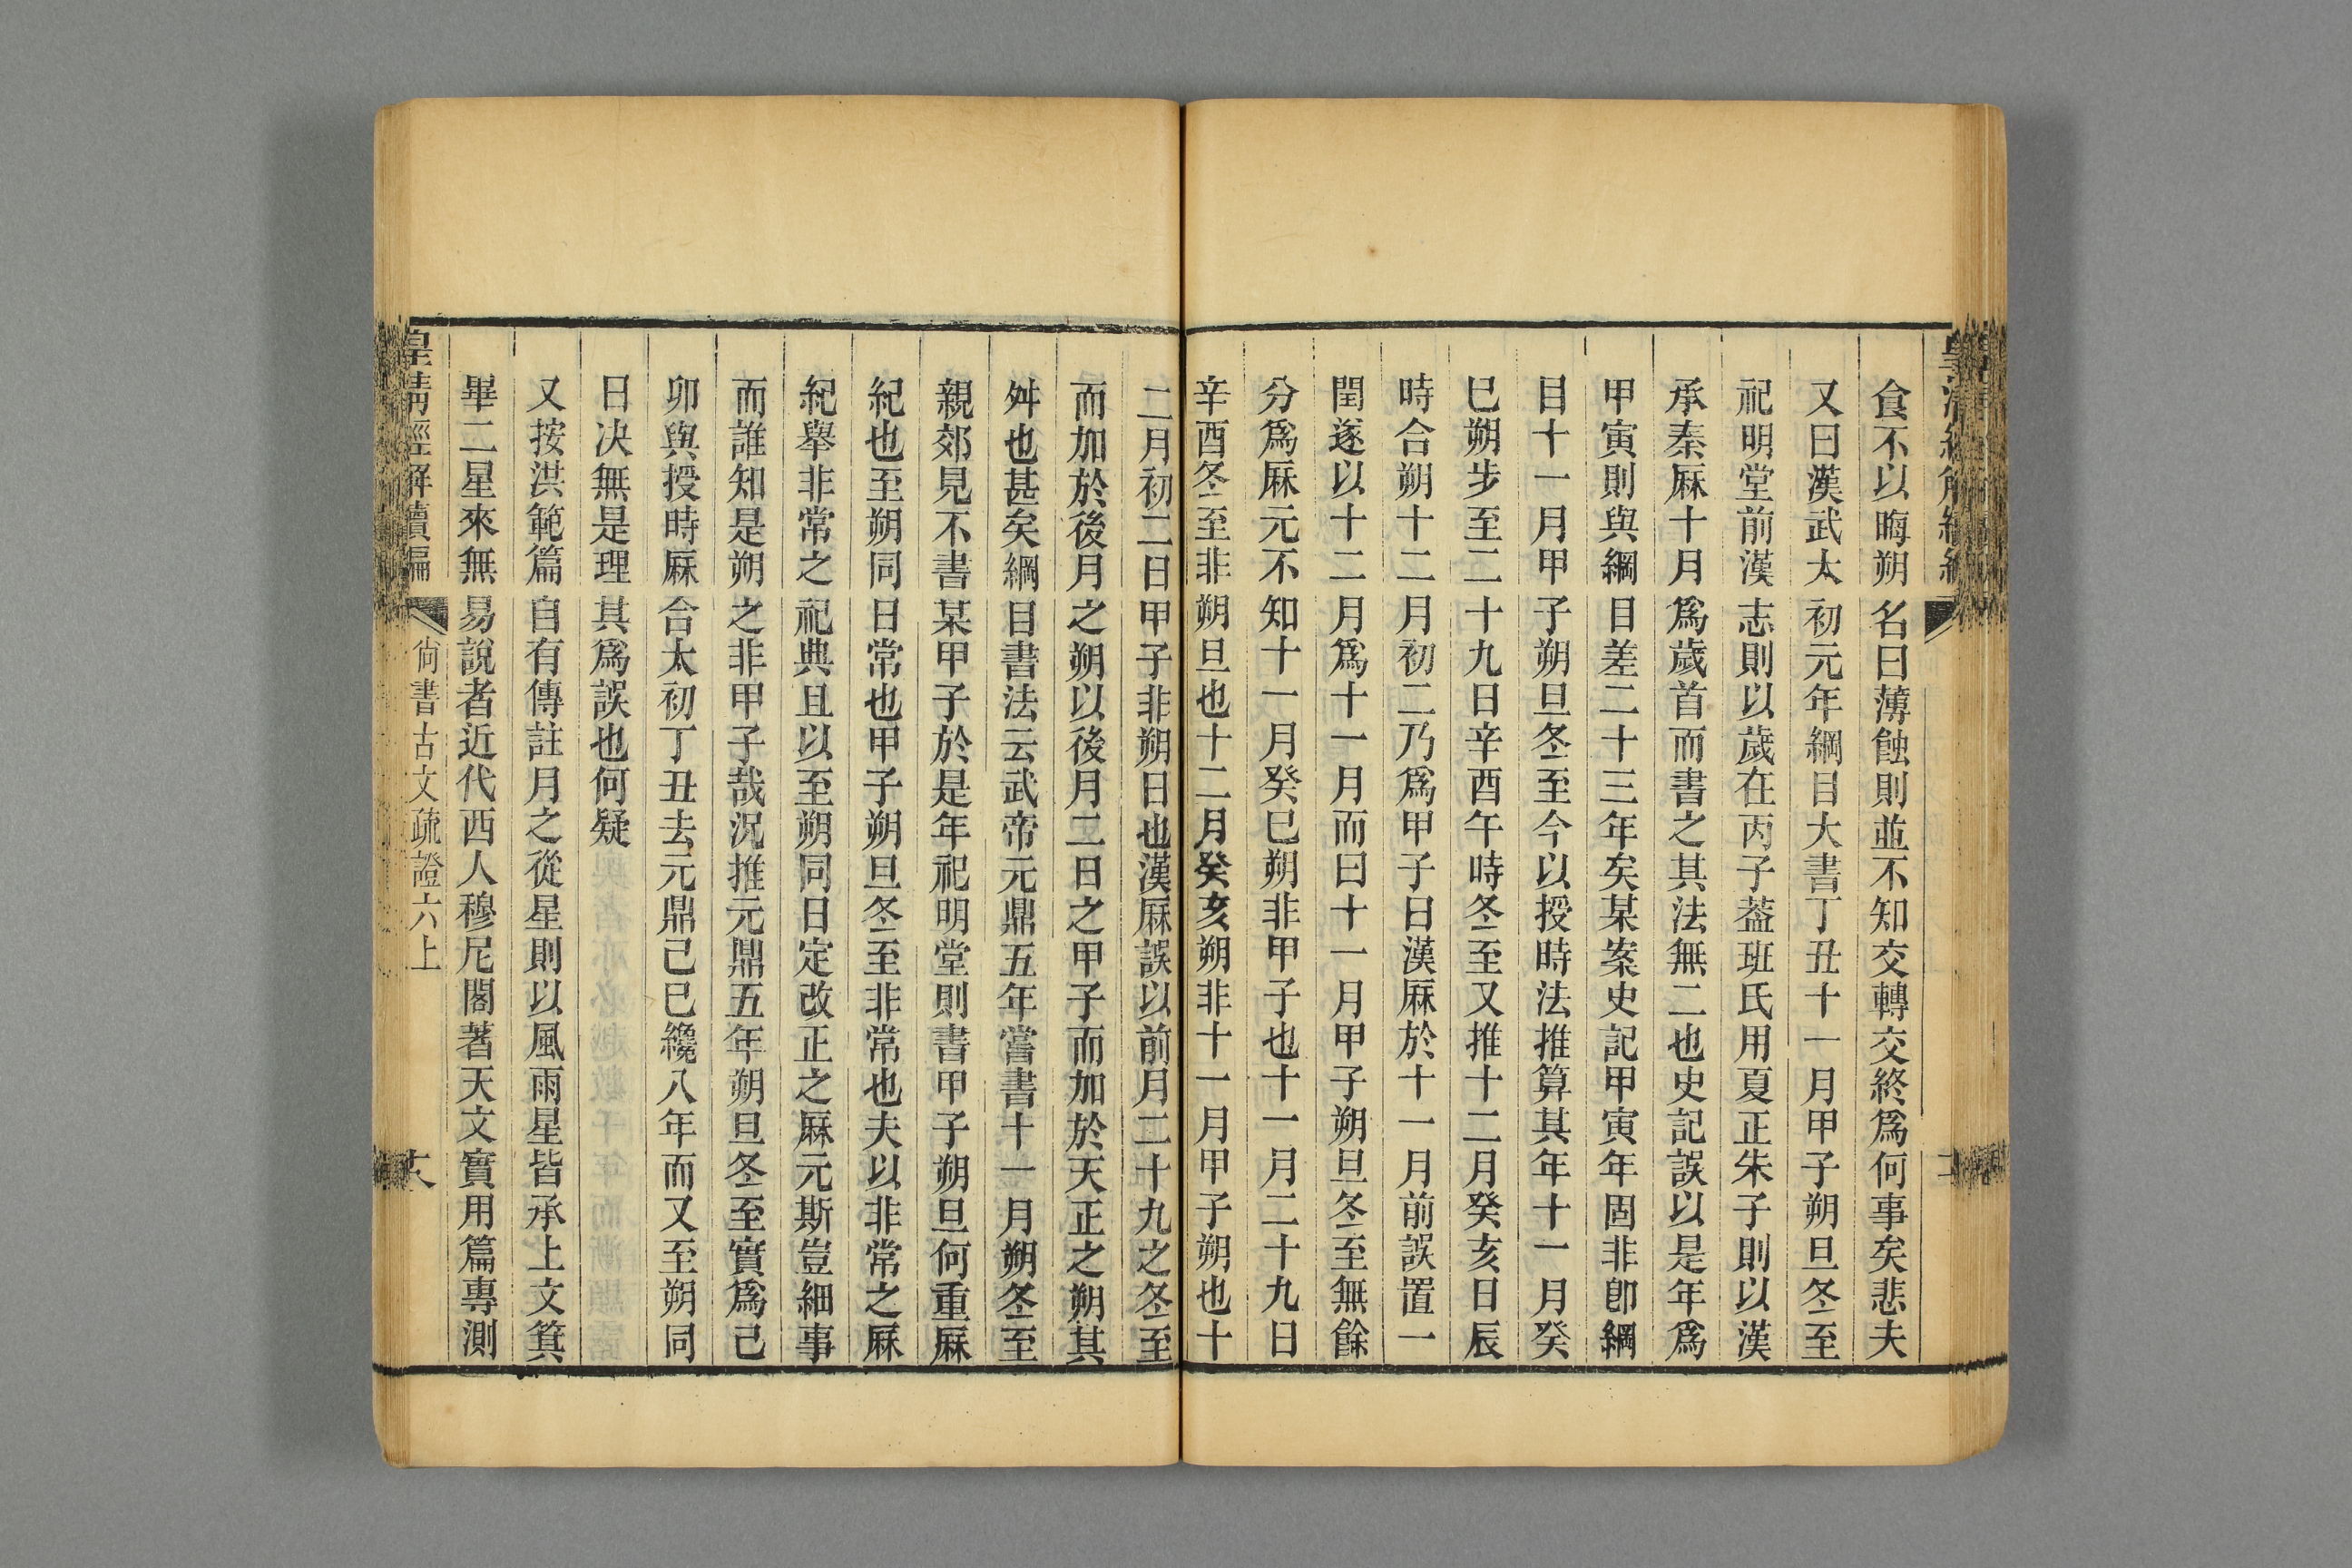 食不以晦朔名曰薄蝕則並不知交轉交終爲何事矣悲夫
又曰漢武太初元年綱目大書丁丑十一月甲子朔旦冬至
祀明堂前漢志則以歲在丙子葢班氏用夏正朱子則以漢
承秦厤十月爲歲首而書之其法無二也史記誤以是年爲
甲寅則與綱目差二十三年矣某案史記甲寅年固非卽綱
目十一月甲子朔旦冬至今以授時法推算其年十一月癸
巳朔步至二十九日辛酉午時冬至又推十二月癸亥日辰
時合朔十二月初二乃爲甲子日漢厤於十一月前誤置一
閏遂以十二月爲十一月而曰十一月甲子朔旦冬至無餘
分爲厤元不知十一月癸巳朔非甲子也十一月二十九日
辛酉冬至非朔旦也十二月癸亥朔非十一月甲子朔也十
二月初二日甲子非朔日也漢厤誤以前月二十九之冬至
而加於後月之朔以後月二日之甲子而加於天正之朔其
舛也甚矣綱目書法云武帝元鼎五年嘗書十一月朔冬至
親郊見不書某甲子於是年祀明堂則書甲子朔旦何重厤
紀也至朔同日常也甲子朔旦冬至非常也夫以非常之厤
紀舉非常之祀典且以至朔同日定改正之厤元斯豈細事
而誰知是朔之非甲子哉況推元鼎五年朔旦冬至實爲己
卯與授時厤合太初丁丑去元鼎己巳纔八年而又至朔同
日决無是理其爲誤也何疑
又按洪範篇自有傳註月之從星則以風雨星皆承上文箕
畢二星來無易說者近代西人穆尼閣著天文實用篇專測
皇淸經解續編
尙書古文疏證六上